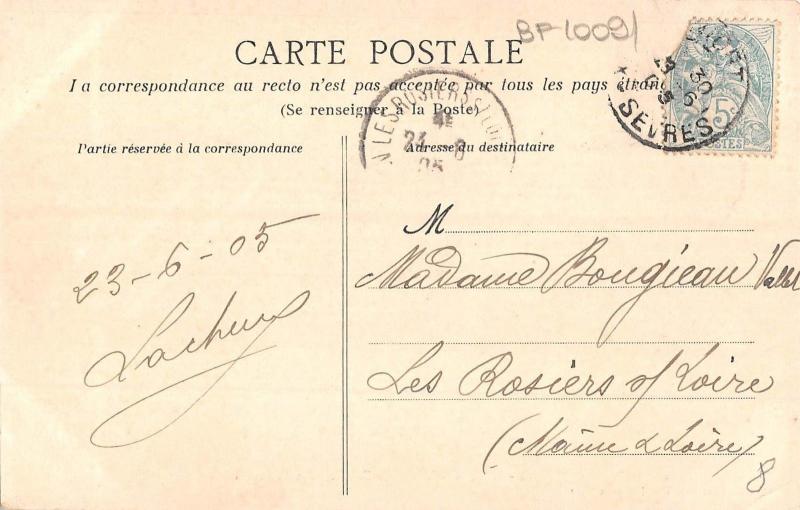 BF-10091
CARTE POSTALE
La correspondance au recto n'est pas acceptée par tous les pays étran
(Se renseigner à la Poste)
Partie réservée à la correspondance
Adresse du destinataire
LES ROSIERS S LOI
24 6
05
30
6
05
SEVRES
5c
POSTES
23-6-05
M
Madame Bougieau Vallet
Les Rosiers s/ Loire
(Maine & Loire)
8